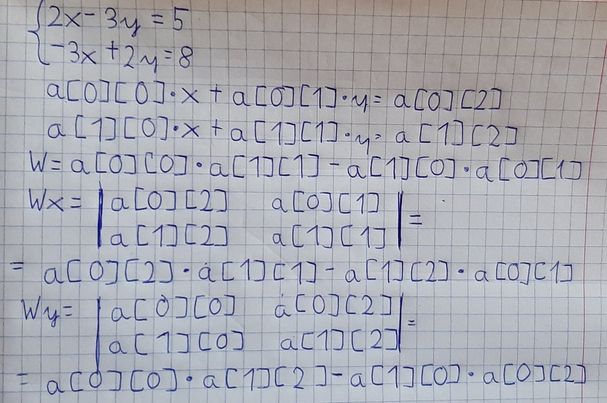 {2x - 3y = 5
-3x + 2y = 8
a[0][0]·x + a[0][1]·y = a[0][2]
a[1][0]·x + a[1][1]·y = a[1][2]
W = a[0][0]·a[1][1] - a[1][0]·a[0][1]
Wx = |a[0][2] a[0][1]| =
|a[1][2] a[1][1]|
= a[0][2]·a[1][1] - a[1][2]·a[0][1]
Wy = |a[0][0] a[0][2]| =
|a[1][0] a[1][2]|
= a[0][0]·a[1][2] - a[1][0]·a[0][2]